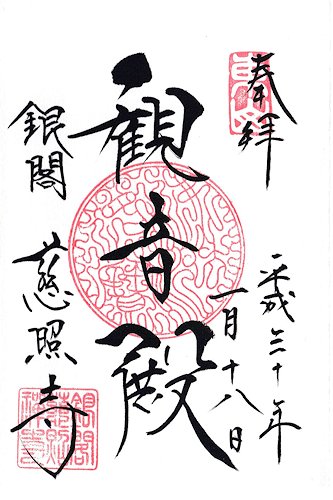 奉拝
平成三十年
一月十八日
観音殿
銀閣
慈照寺